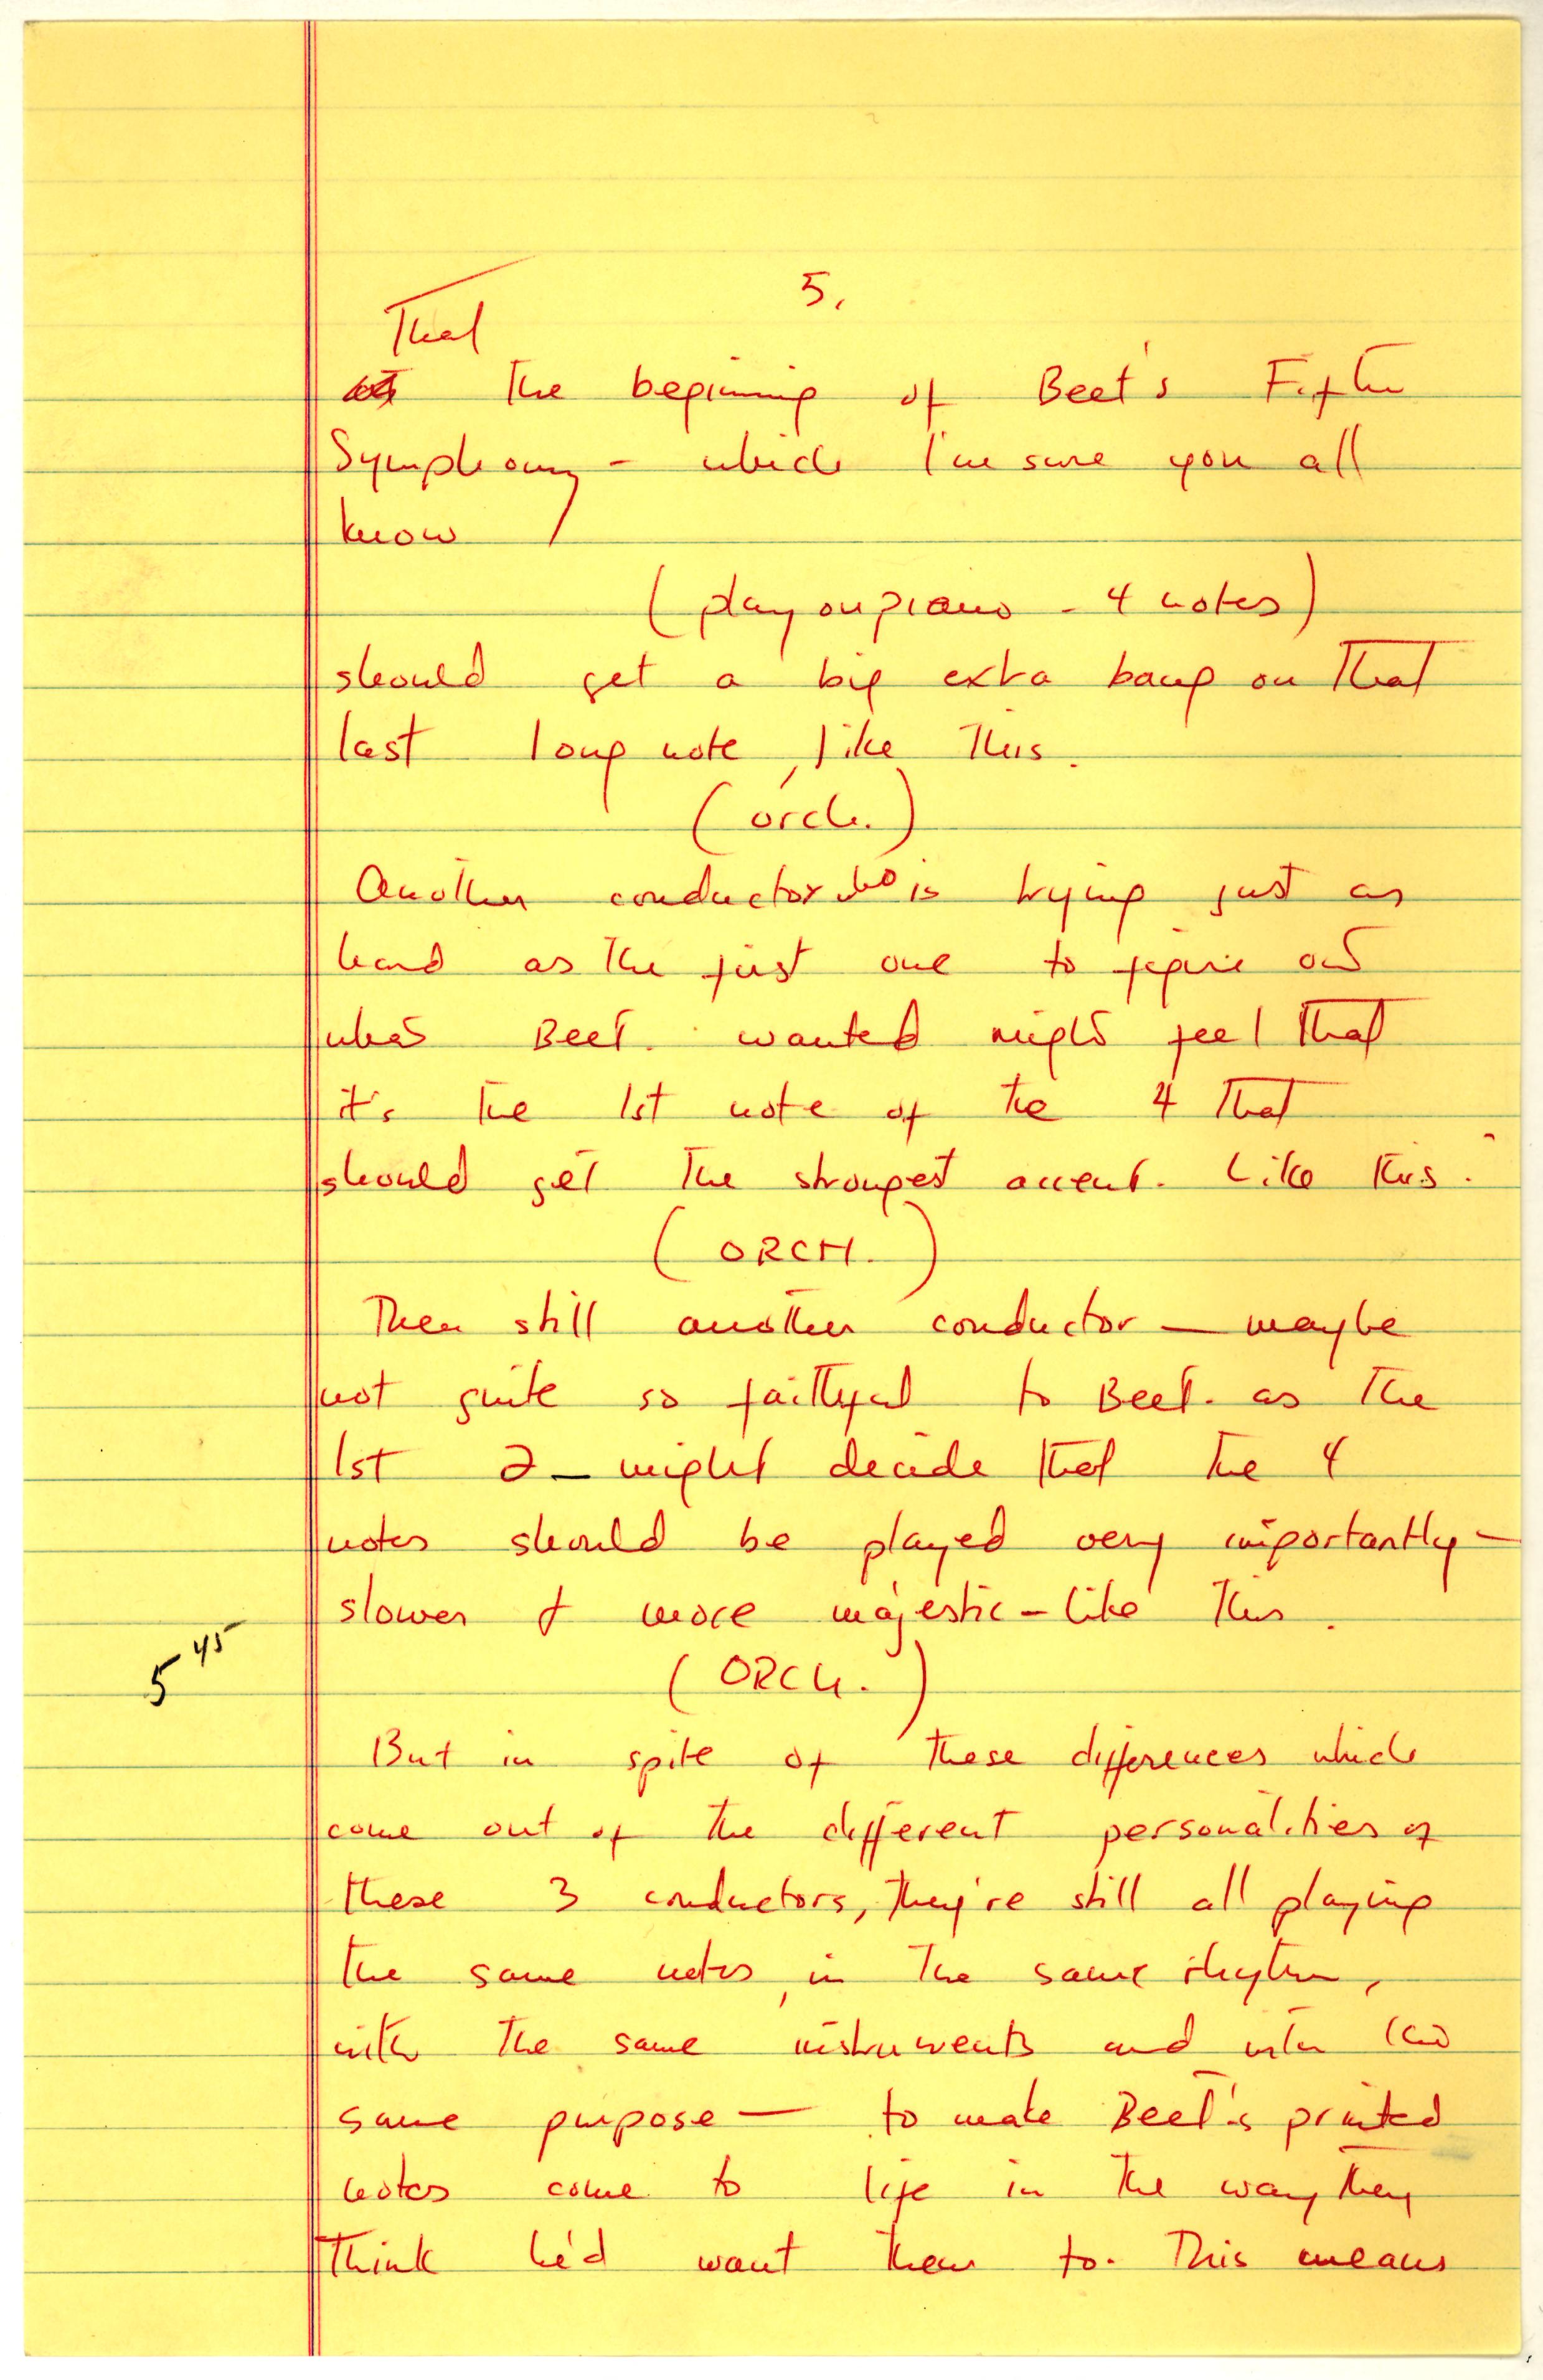 5.
That
the beginning of Beet's Fifth
Symphony - which I'm sure you all
know
(play on piano - 4 notes)
should get a big extra bang on that
last long note, like this.
(orch.)
Another conductor who is trying just as
hard as the first one to figure out
what Beet. wanted might feel that
it's the 1st note of the 4 that
should get the strongest accent. Like this.
(ORCH.)
Then still another conductor — maybe
not quite so faithful to Beet. as the
1st 2 — might decide that the 4
notes should be played very importantly —
slower & more majestic - like this.
5 45
(ORCH.)
But in spite of these differences which
come out of the different personalities of
these 3 conductors, they're still all playing
the same notes, in the same rhythm,
with the same instruments and with the
same purpose — to make Beet's printed
notes come to life in the way they
think he'd want them to. This means